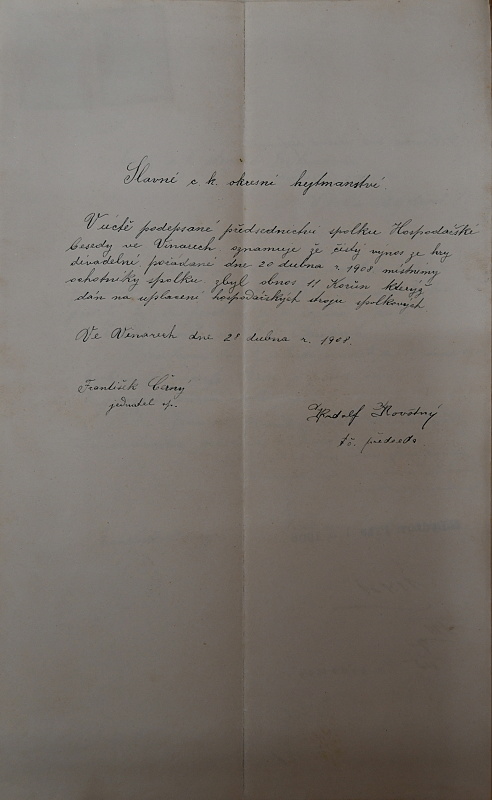 Slavné c. k. okresní hejtmanství.
V úctě podepsané předsednictví spolku Hospodářské
besedy ve Vinarech oznamuje že čistý výnos ze hry
divadelné pořádané dne 20 dubna r. 1908 místnemy
ochotníky spolku zbyl obnos 11 Korun kterýž
dán na uplacení hospodářských strogu spolkových.
Ve Vinarech dne 28 dubna r. 1908.
František
jednatel sp.
Rudolf Novotný
t. č. předseda.